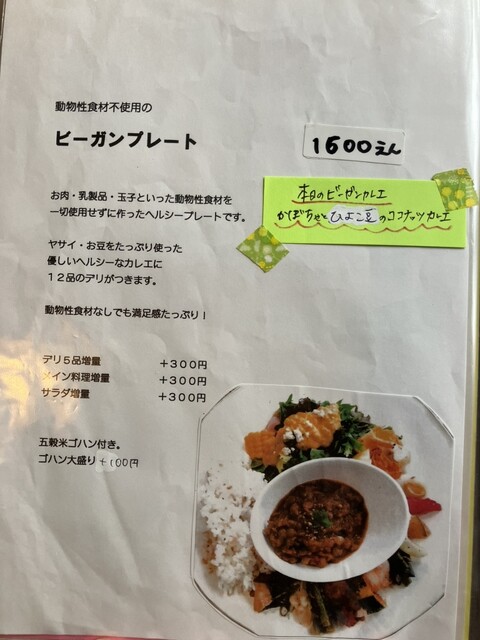 動物性食材不使用の
ビーガンプレート
1600えん
本日のビーガンカレエ
かぼちゃとひよこ豆のココナッツカレエ
お肉・乳製品・玉子といった動物性食材を
一切使用せずに作ったヘルシープレートです。
ヤサイ・お豆をたっぷり使った
優しいヘルシーなカレエに
１２品のデリがつきます。
動物性食材なしでも満足感たっぷり！
デリ５品増量 ＋３００円
メイン料理増量 ＋３００円
サラダ増量 ＋３００円
五穀米ゴハン付き。
ゴハン大盛り＋１００円